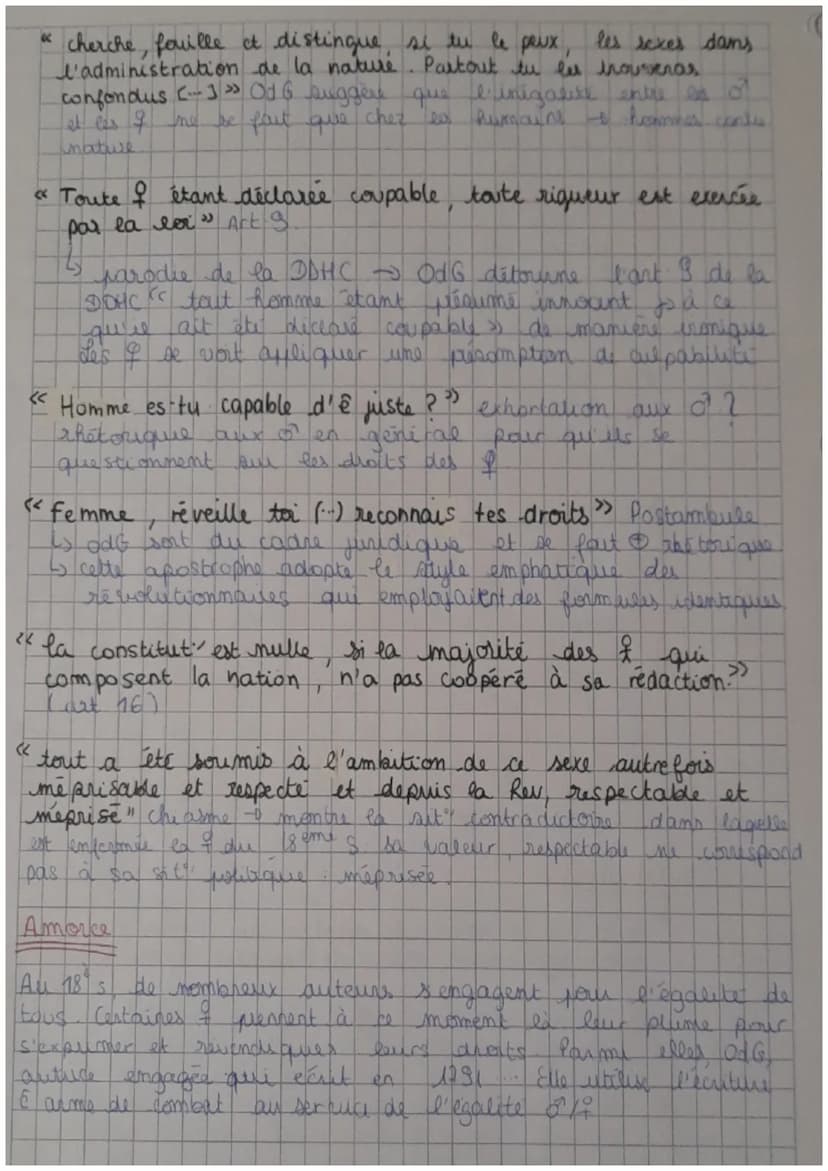 « cherche, fouille et distingue, si tu le peux, les sexes dans
l'administration de la nature. Partout tu les trouveras
confondus (...) » OdG suggère que l'inégalité entre les ♂
et les ♀ ne se fait que chez les humains → hommes contre
nature
« Toute ♀ étant déclarée coupable, toute rigueur est exercée
par la loi » Art 9.
↳ parodie de la DDHC → OdG détourne l'art 9 de la
DDHC « tout homme étant présumé innocent jsq à ce
qu'il ait été déclaré coupable » de manière ironique
Les ♀ se voit appliquer une présomption de culpabilité
« Homme es-tu capable d'ê juste ? » exhortation aux ♂ ?
rhétorique aux ♂ en général pour qu'ils se
questionnent sur les droits des ♀
« femme, réveille toi (..) reconnais tes droits » Postambule
↳ odG sort du cadre juridique et se fait ⊕ rhétorique
↳ cette apostrophe adopte le style emphatique des
révolutionnaires qui employaient des formules identiques
« la constitut° est nulle, si la majorité des ♀ qui
composent la nation, n'a pas coopéré à sa rédaction. »
(art 16)
« tout a été soumis à l'ambition de ce sexe autrefois
méprisable et respecté et depuis la Rev, respectable et
méprisé " chiasme → montre la sit° contradictoire dans laquelle
est enfermée la ♀ du 18ème s. sa valeur, respectable ne correspond
pas à sa sit° politique : méprisée.
Amorce
Au 18° s, de nombreux auteurs s'engagent pour l'égalité de
tous. Certaines ♀ prennent à ce moment là leur plume pour
s'exprimer et revendiquer leurs droits. Parmi elles, OdG,
autrice engagée qui écrit en 1791 ... Elle utilise l'écriture
ê arme de combat au service de l'égalité ♂/♀